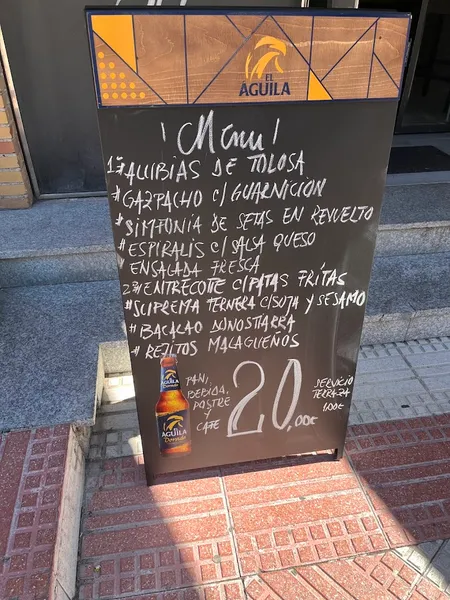 EL
AGUILA
¡Menu!
1º ALUBIAS DE TOLOSA
* GAZPACHO C/ GUARNICION
* SIMFONIA DE SETAS EN REVUELTO
* ESPIRALIS C/ SALSA QUESO
* ENSALADA FRESCA
2º ENTRECOTTE C/ PATAS FRITAS
* SUPREMA TERNERA C/ SOJA Y SESAMO
* BACALAO DONOSTIARRA
* REJITOS MALAGUEÑOS
PAN,
BEBIDA,
POSTRE
Y
CAFE
20,00€
SERVICIO
TERRAZA
1,00€
AGUILA
EL
AGUILA
Dorada